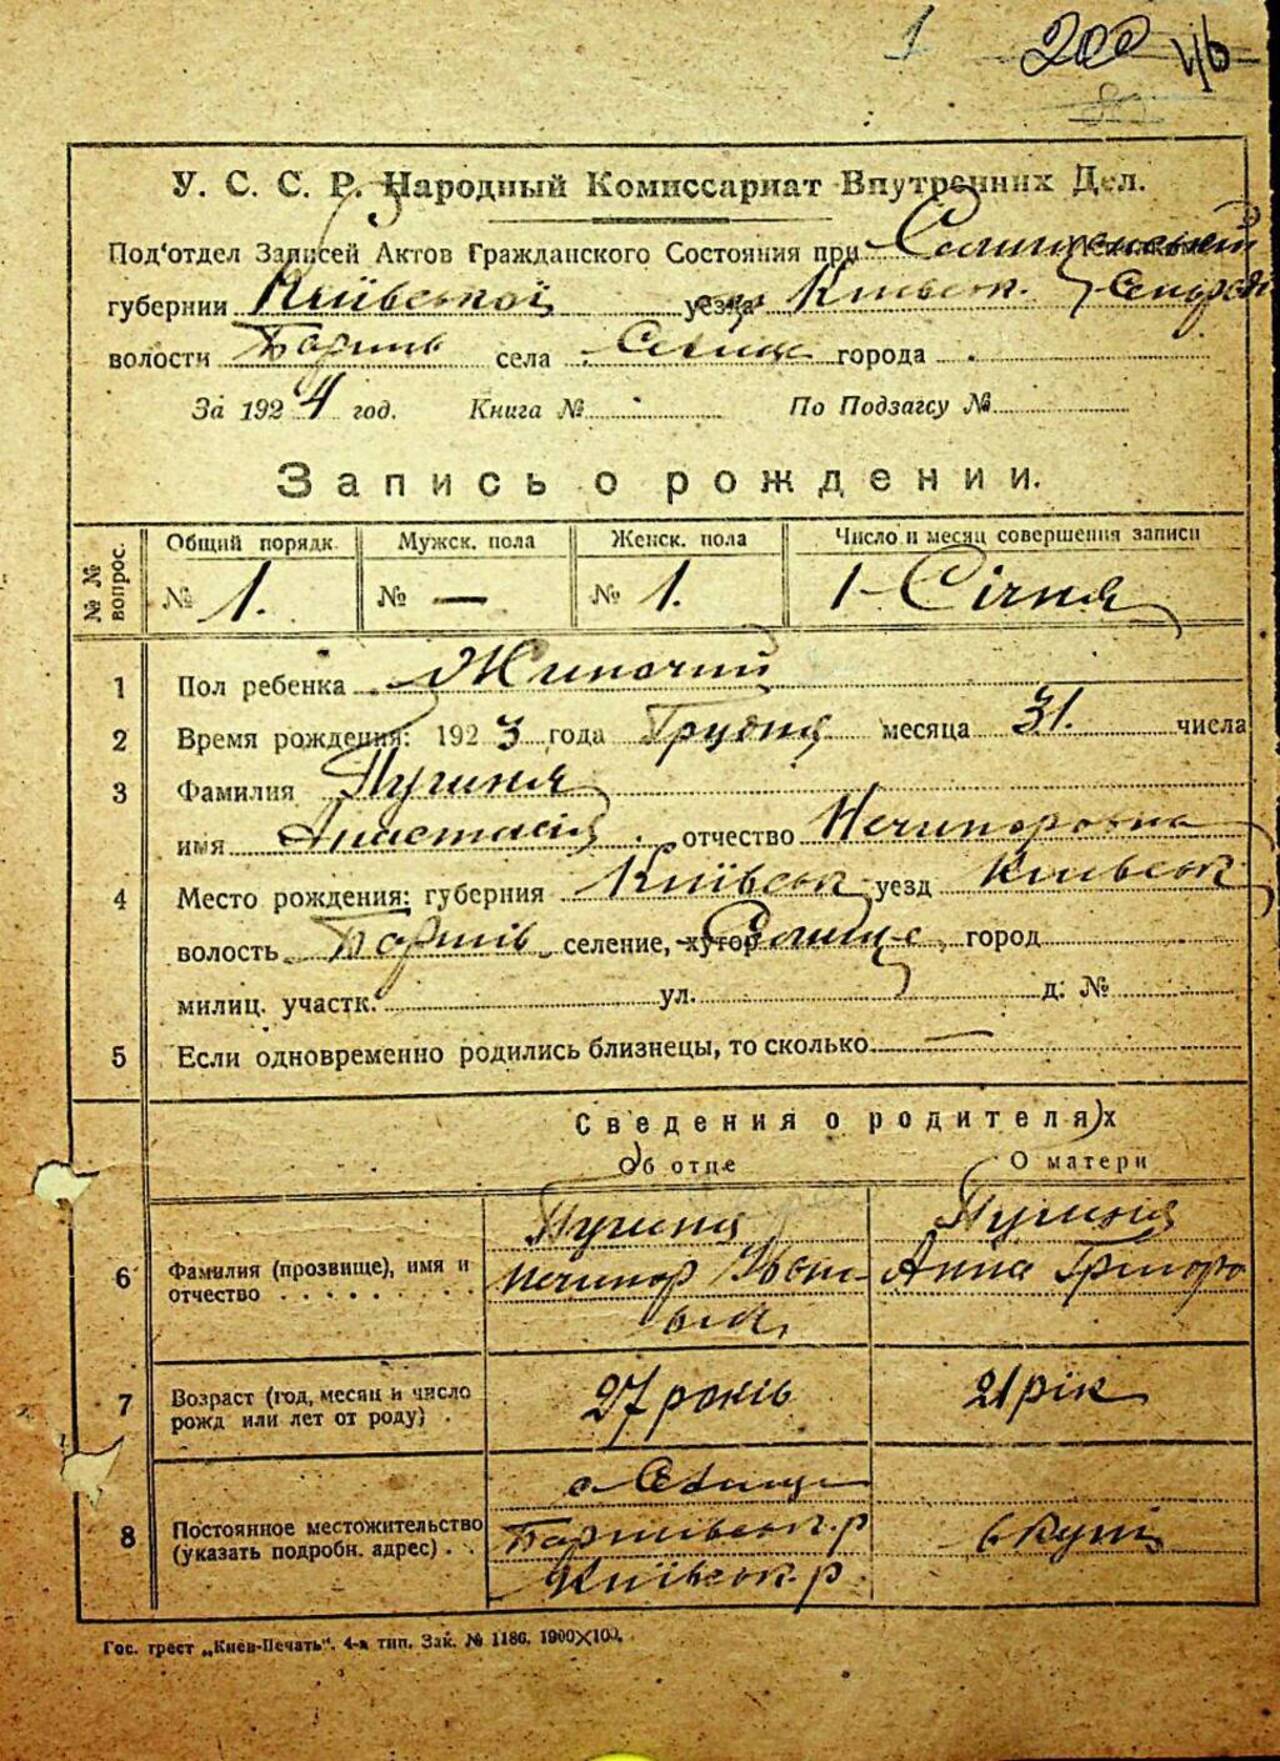 1 200
У. С. С. Р. Народный Комиссариат Внутренних Дел.
Под'отдел Записей Актов Гражданского Состояния при
губернии Київської уезда Київськ.
волости села Селище города
За 1924 год. Книга № По Подзагсу №
Запись о рождении.
№ № вопрос. Общий порядк. Мужск. пола Женск. пола Число и месяц совершения записи
№ 1. № — № 1. 1 – Січня
1 Пол ребенка Жиночий
2 Время рождения: 1923 года Грудня месяца 31. числа
3 Фамилия
имя Анастасія отчество Нечипоровна
4 Место рождения: губерния Київськ уезд Київськ
волость селение, хутор Селище, город
милиц. участк. ул. д. №
5 Если одновременно родились близнецы, то сколько —
Сведения о родителях
Об отце О матери
6 Фамилия (прозвище), имя и
отчество
Нечипор Анна
7 Возраст (год, месяц и число
рожд или лет от роду) . 27 років 21 рік
8 Постоянное местожительство
(указать подробн. адрес) . .
с. Селище
Київськ. р. вкупі
Гос. трест „Киев-Печать". 4-я тип. Зак. № 1186. 1900×100.